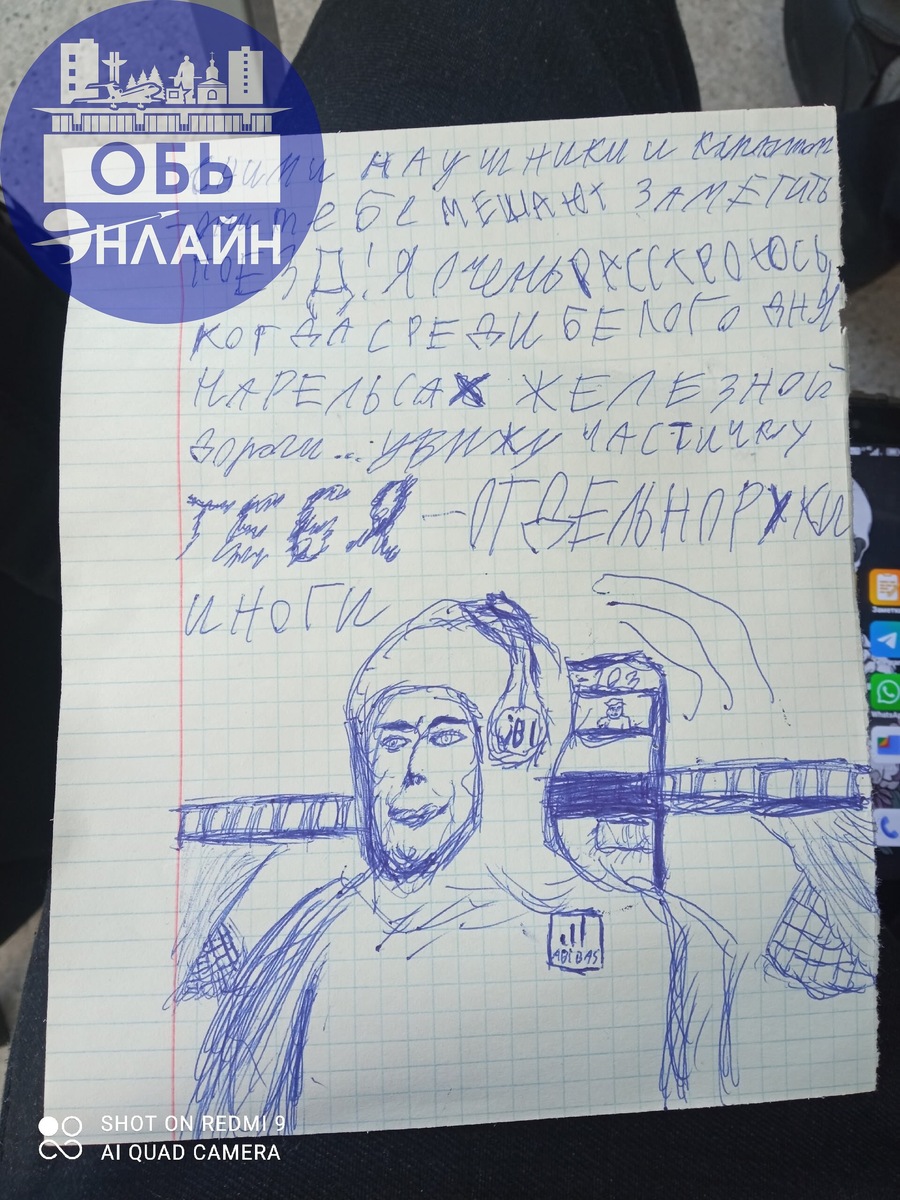 ОБЬ
ОНЛАЙН
СНИМИ НАУШНИКИ И КАПЮШОН
ОНИ ТЕБЕ МЕШАЮТ ЗАМЕТИТЬ
ПОЕЗД! Я Очень РАССТРОЮСЬ,
КОГДА СРЕДИ БЕЛОГО ДНЯ
НА РЕЛЬСАХ ЖЕЛЕЗНОЙ
дороги... УВИЖУ ЧАСТИЧКУ
ТЕБЯ - ОТДЕЛЬНО РУКИ
И НОГИ
JBL
-103
ABIBAS
Заметки
WhatsA
SHOT ON REDMI 9
AI QUAD CAMERA